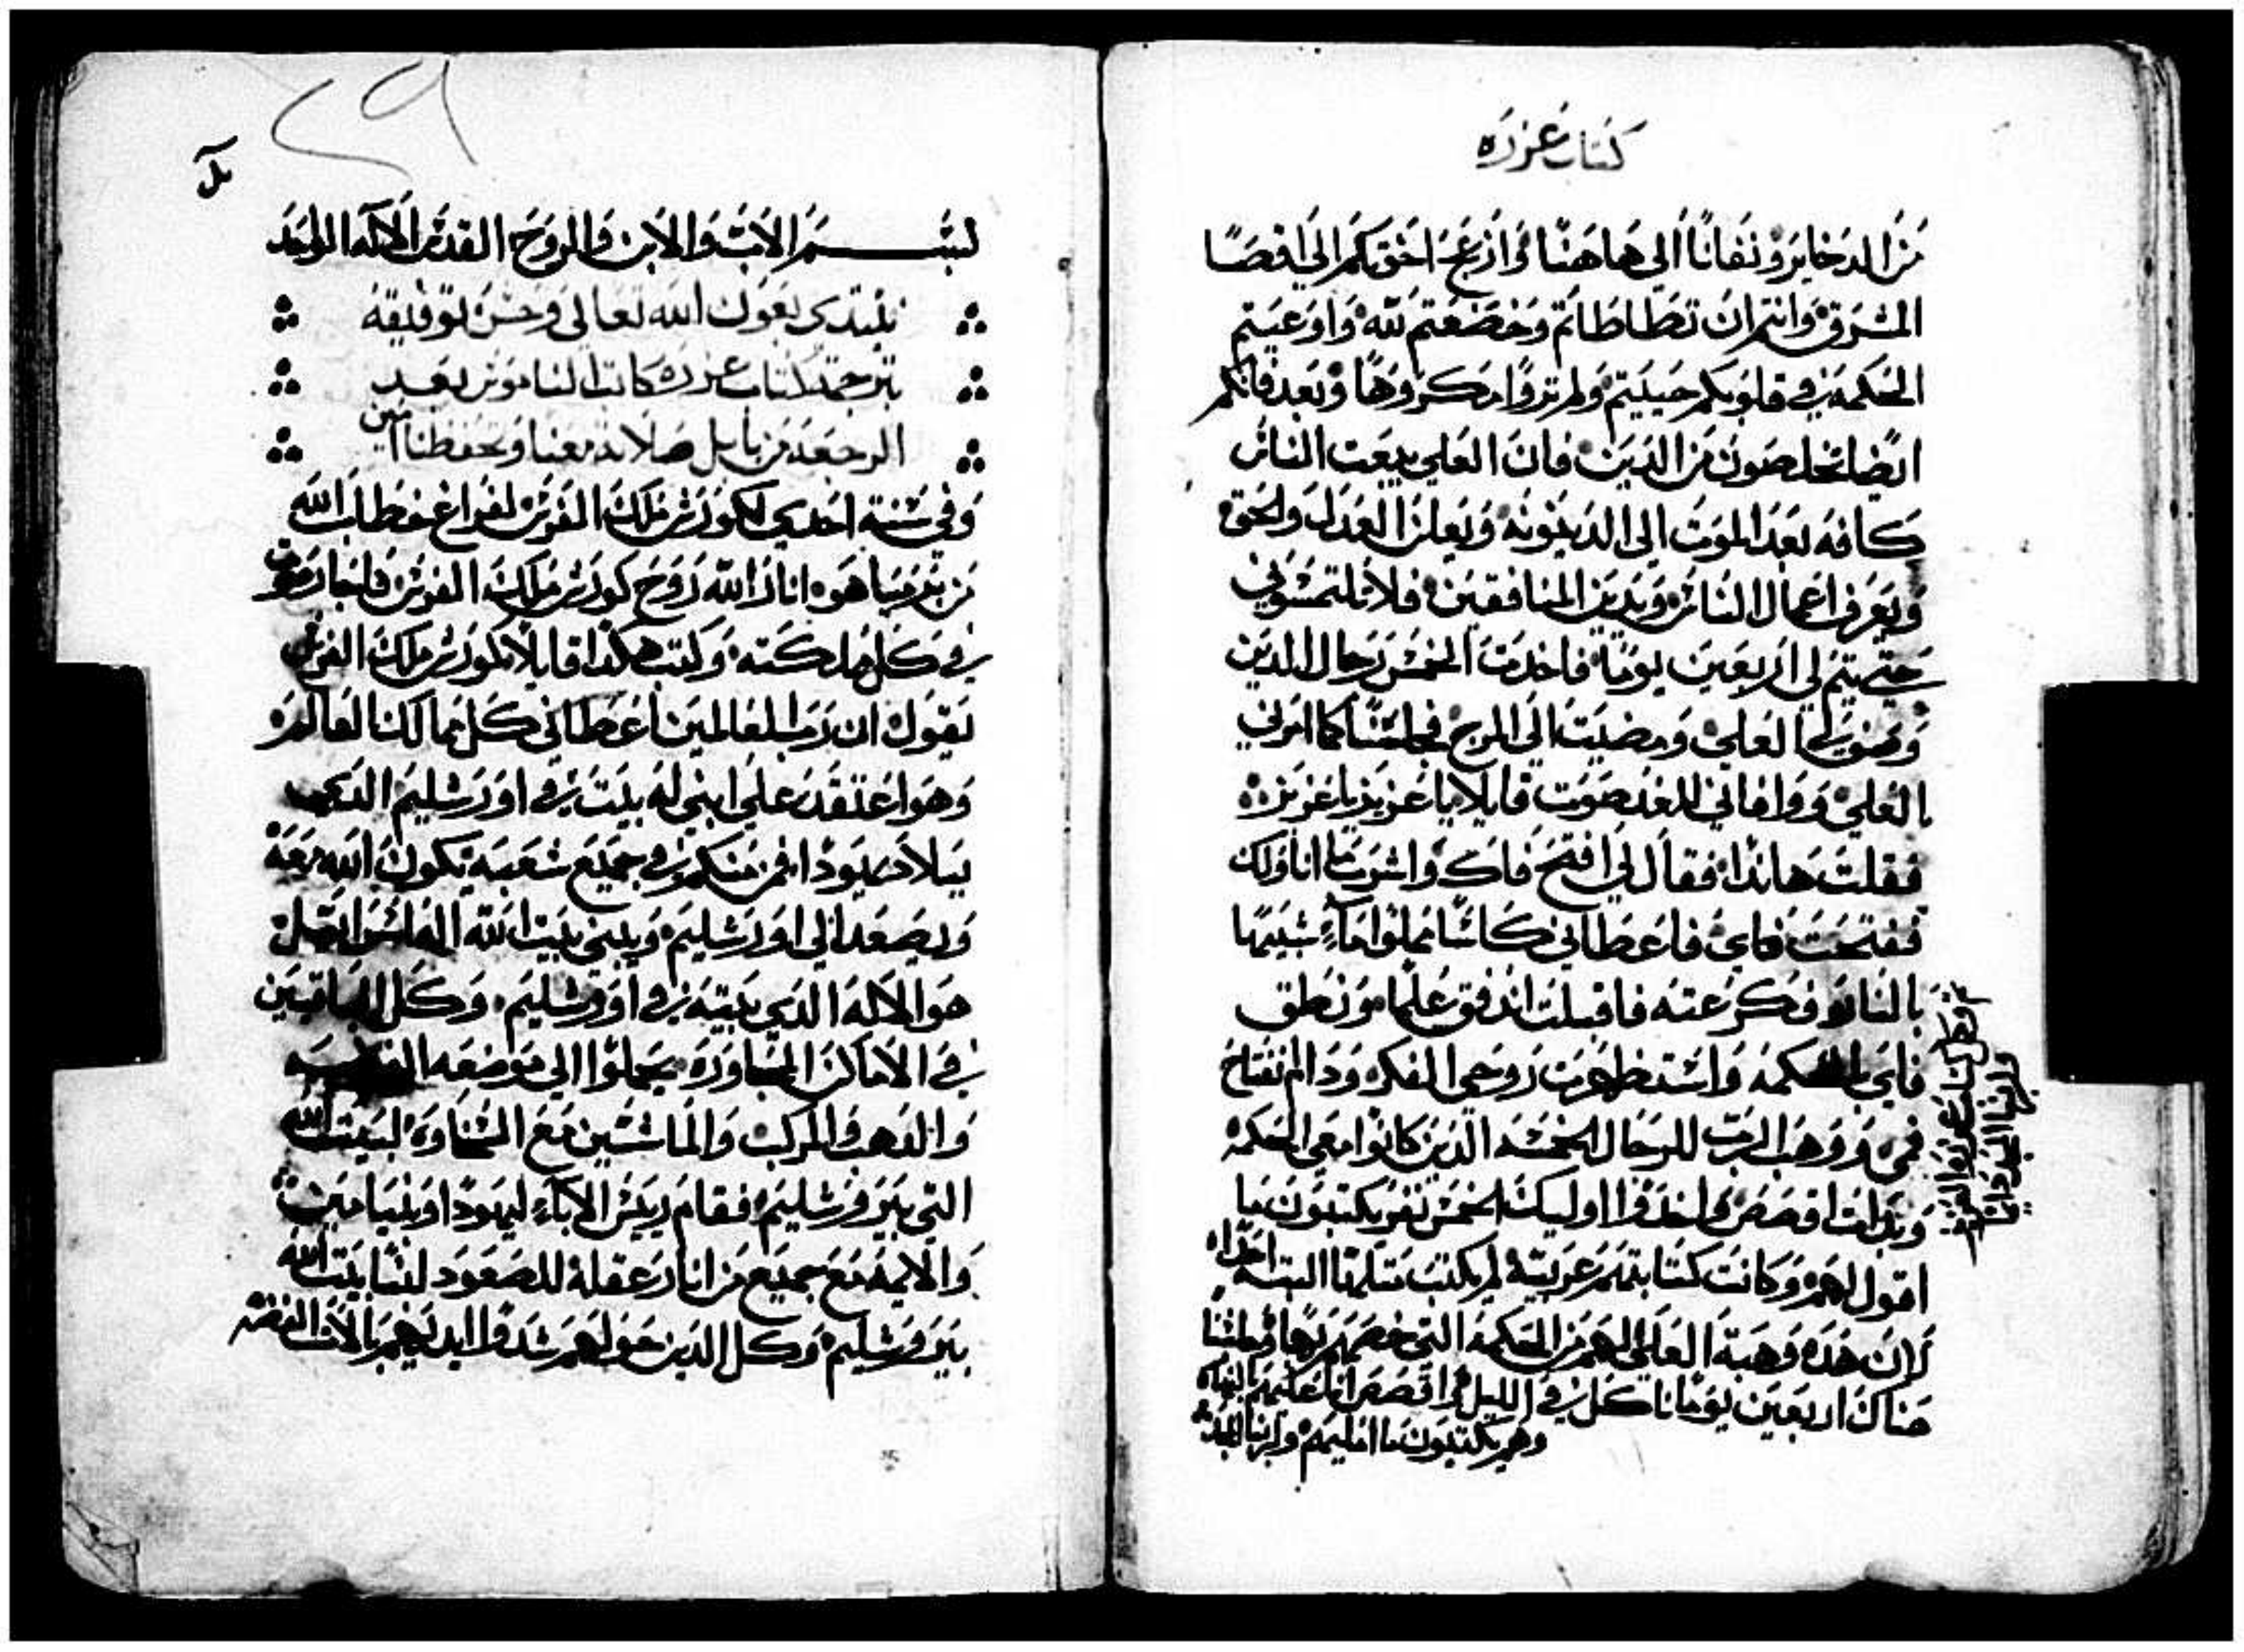 كتاب عزره
من الدخاير ونفانا الي هاهنا وازعج اخوتكم الي اقصا
المشرق وانتم ان تطاطاتم وخضعتم لله واوعيتم
الحكمه في قلوبكم حييتم ولم تروا مكروها وبعد فانكم
ايضا تخلصون من الدين فان العلي يبعت الناس
كافه بعد الموت الي الدينونه ويعلن العدل والحق
ويعرف اعمال الناس ويدين المنافقين فلا تلتمسوني
حتي يتم لي اربعين يوما فاخدت الخمس رجال الدين
العلي ومضيت الي المرج فجلسنا كما امرني
العلي ووافاني للغد صوت قايلا يا عزيز يا عزيز
فقلت هاندا فقال لي افتح فاك واشرب ما اناولك
ففتحت فاي فاعطاني كاسا مملوا ماء شبيها
بالنار فكرعته فاقبلت اندفق علما ونطق
فاي بالحكمه واستظهرت روحي الفكر ودام انفتاح
فمي ووهب الرب للرجال الخمسه الدين كانوا معي الحكمه
وبدات اقصص واخدوا اوليك الخمس نفر يكتبون ما
اقول لهم وكانت كتابتهم غريبة لم يكتب مثلها البته احدا
لان هده وهبة العلي لهم من الحكمه التي خصهم بها وجلسنا
هناك اربعين يوما ناكل في الليل واقصص انا عليهم بالنهار
وهم يكتبون ما امليهم ولربنا المجد
ولربنا المجد دايما
بسم الاب والابن والروح القدس الاله الواحد
نبتدي بعون الله تعالي وحسن توفيقه
بترجمة كتاب عزره كاتب الناموس بعد
الرجعه من بابل صلاته معنا وتحفظنا امين
وفي سنة احدي لكورش ملك الفرس لفراغ خطاب الله
من يرميا هو انار الله روح كورش ملك الفرس فاجاز صوت
في كل مملكته وكتب هكدا قايلا كورش ملك الفرس
يقول ان رب العالمين اعطاني كل ممالك العالم
وهو اعتقد علي ابني له بيت في اورشليم الدي
ببلاد يهودا فمن منكم في جميع شعبه يكون الله معه
ويصعد الي اورشليم ويبني بيت الله اله اسرايل
هو الاله الدي بيته في اورشليم وكل الباقيين
في الاماكن المجاوره يحملوا الي موضعه الفضه
والدهب والمركب والماشيين مع السناوه لبيت الله
التي بيروشليم فقام رييس الاباء ليهودا وبنيامين
والايمه مع جميع من انار عقله للصعود لبنا بيت الله
بيروشليم وكل الدين حولهم شدوا ايديهم بالات الفضه